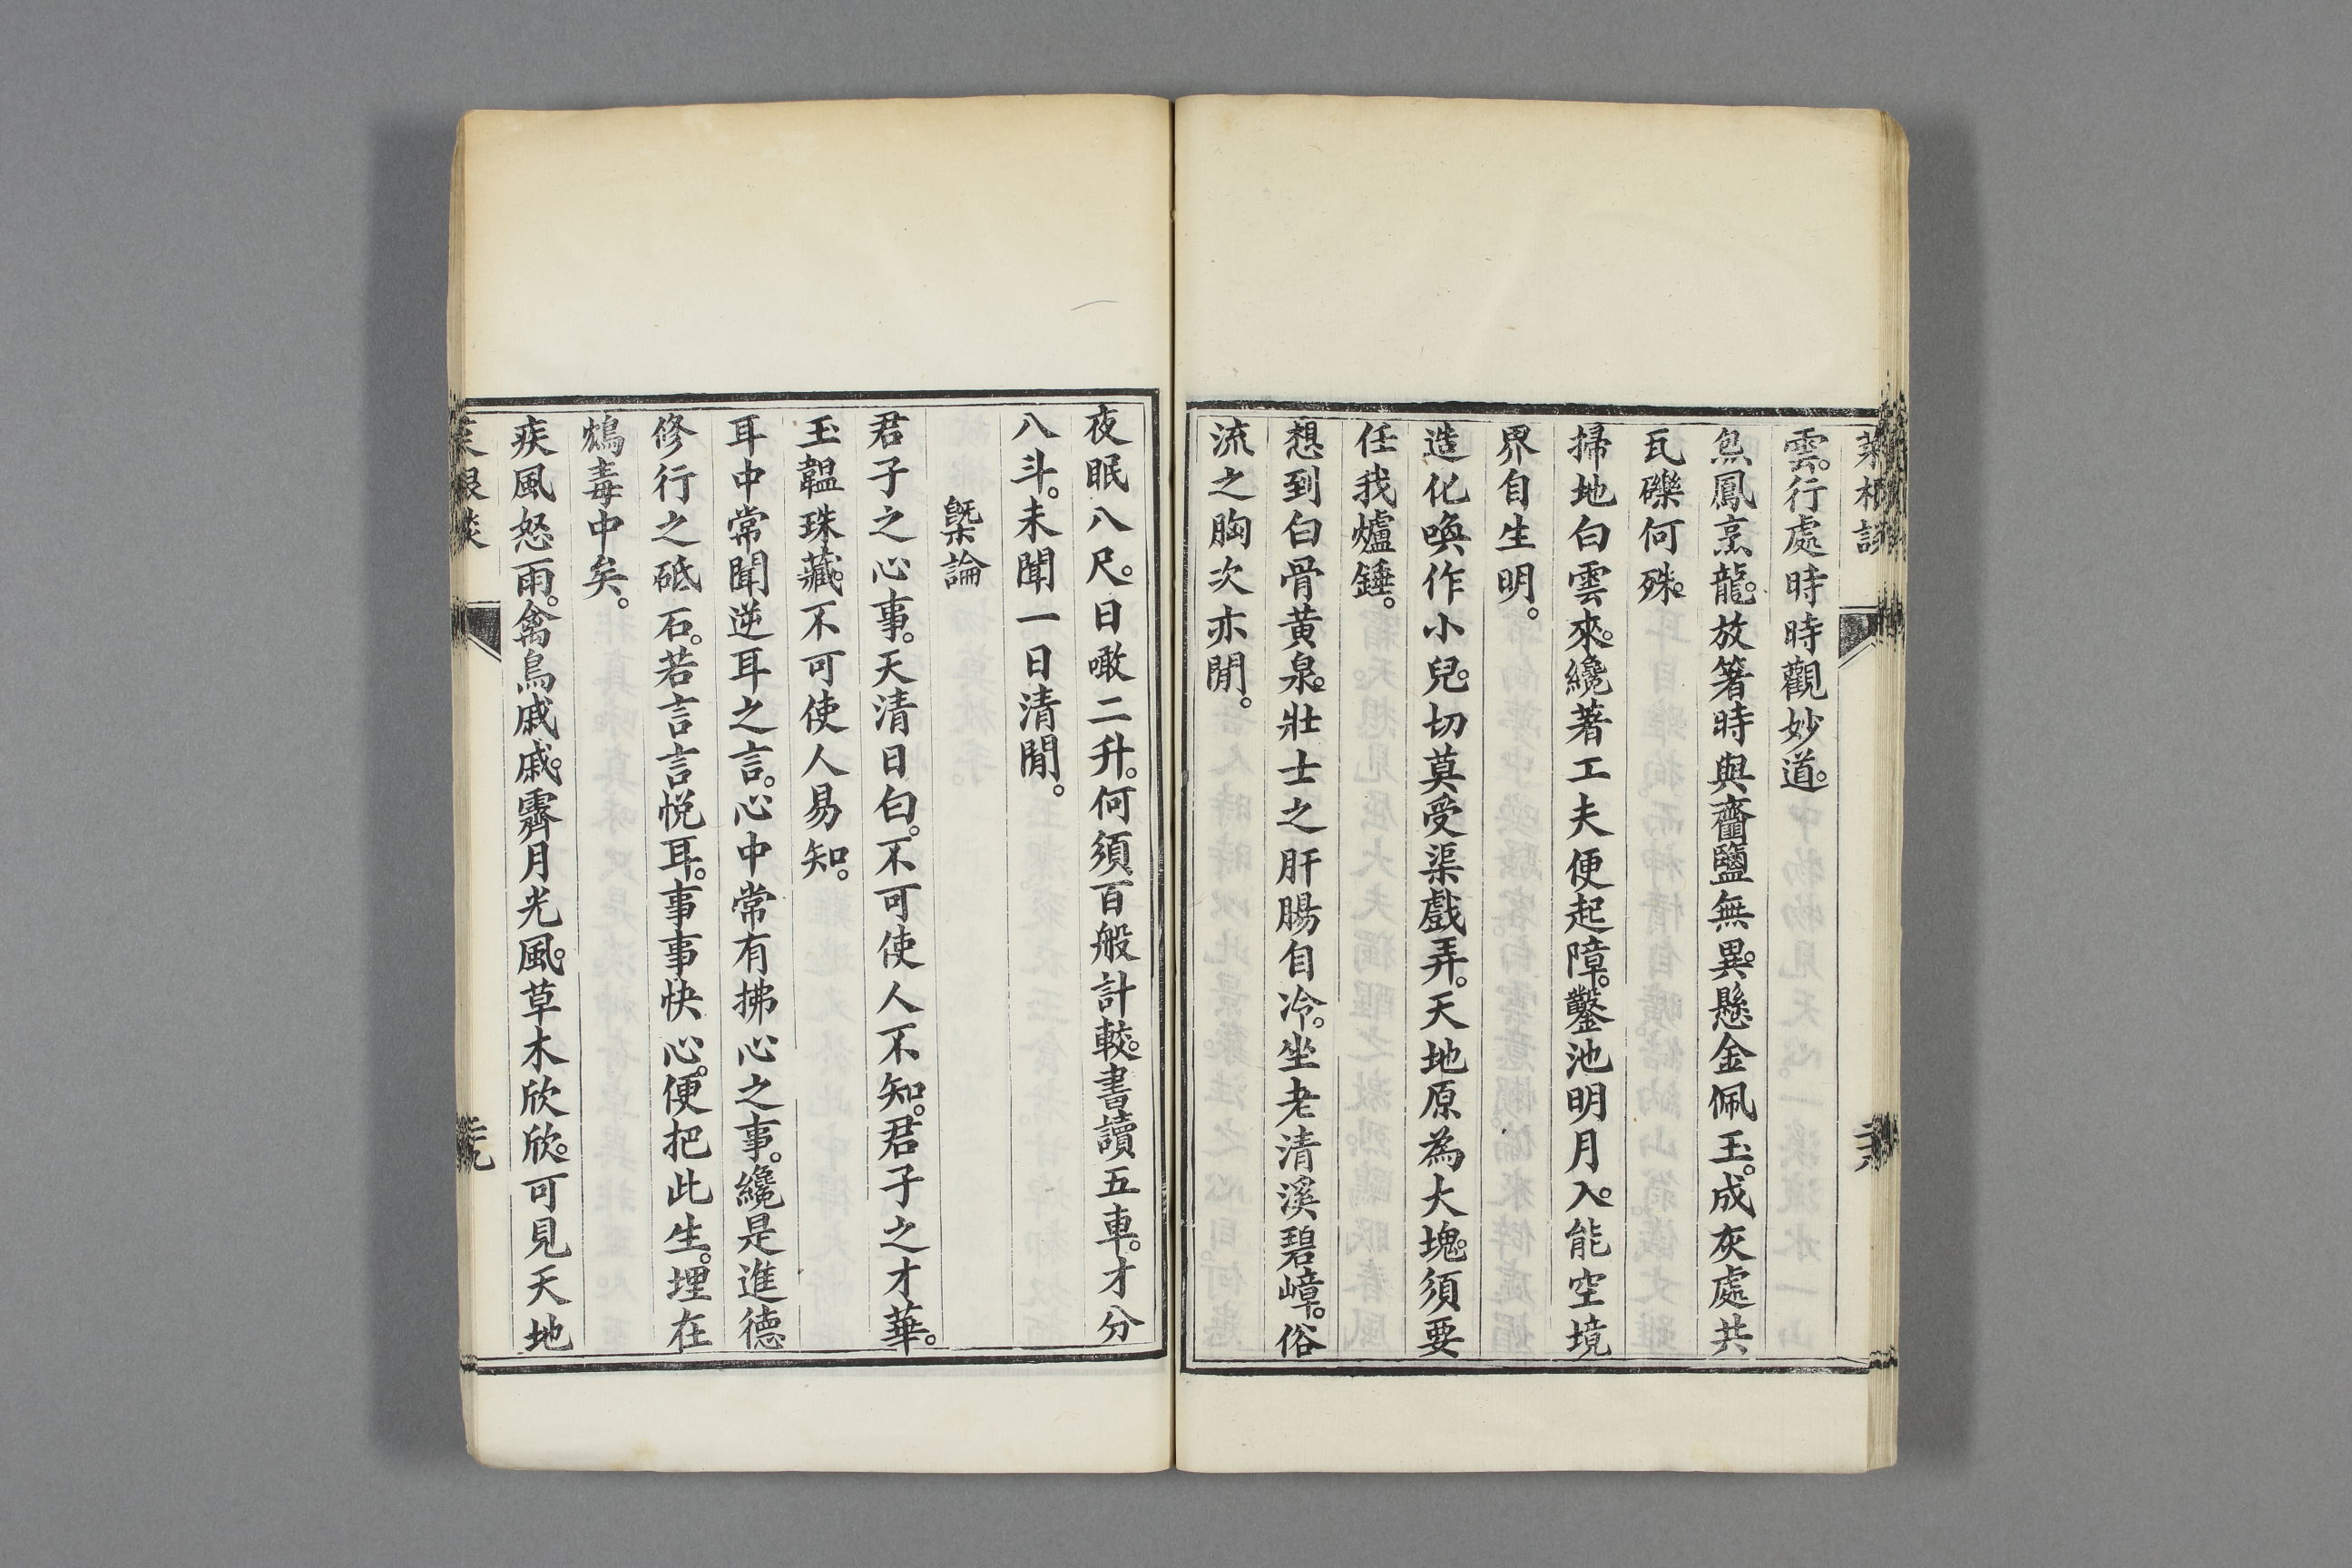 菜根談
雲。行處時時觀妙道。
炰鳳烹龍。放箸時與齏鹽無異。懸金佩玉。成灰處共
瓦礫何殊。
掃地白雲來。纔著工夫便起障。鑿池明月入。能空境
界自生明。
造化喚作小兒。切莫受渠戲弄。天地原為大塊。須要
任我爐錘。
想到白骨黃泉。壯士之肝腸自冷。坐老清溪碧嶂。俗
流之胸次亦閒。
夜眠八尺。日噉二升。何須百般計較。書讀五車。才分
八斗。未聞一日清閒。
槩論
君子之心事。天清日白。不可使人不知。君子之才華。
玉韞珠藏。不可使人易知。
耳中常聞逆耳之言。心中常有拂心之事。纔是進德
修行之砥石。若言言悅耳。事事快心。便把此生。埋在
鴆毒中矣。
疾風怒雨。禽鳥戚戚。霽月光風。草木欣欣。可見天地
菜根談